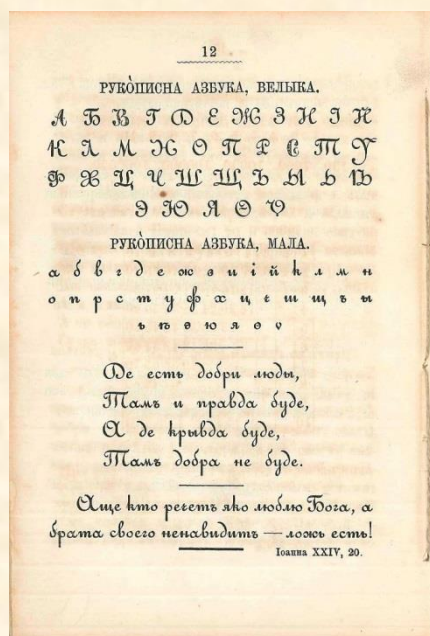 12
РУКО̀ПИСНА АЗБУКА, ВЕЛЫКА.
А Б В Г Д Е Ж З И І Й
К Л М Н О П Р С Т У
Ф Х Ц Ч Ш Щ Ъ Ы Ь Ѣ
Э Ю Я Ѳ Ѵ
РУКО̀ПИСНА АЗБУКА, МАЛА.
а б в г д е ж з и і й к л м н
о п р с т у ф х ц ч ш щ ъ ы
ь ѣ э ю я ѳ ѵ
Де есть добри люды,
Тамъ и правда буде,
А де крывда буде,
Тамъ добра не буде.
Аще кто речетъ яко люблю Бога, а
брата своего ненавидитъ — ложь есть!
Іоанна XXIV, 20.